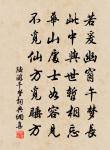 若爱幽窗午梦长
此中与世暂相忘
华山处士如容见
不觅仙方觅睡方
陆游午梦词典网书